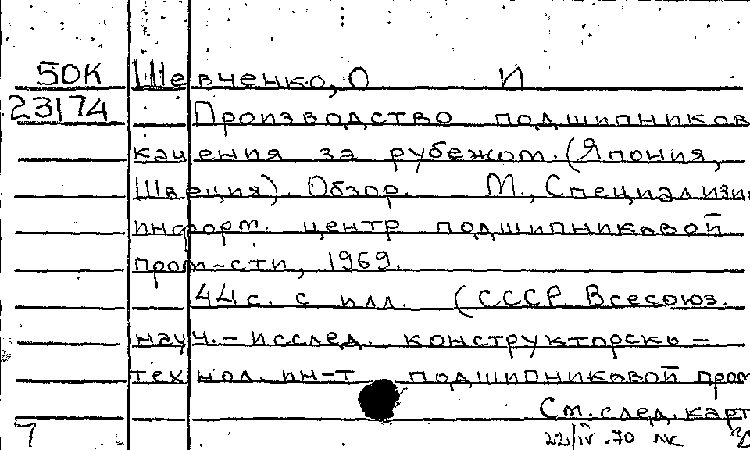 50К Шевченко, О И
23174 Производство подшипников
качения за рубежом. (Япония,
Швеция). Обзор. М., Специализи
информ. центр подшипниковой
пром-сти, 1969.
44 с. с илл. (СССР. Всесоюз.
науч.-исслед. конструкторско-
технол. ин-т подшипниковой пром
См. след. карт
7 22/IV.70